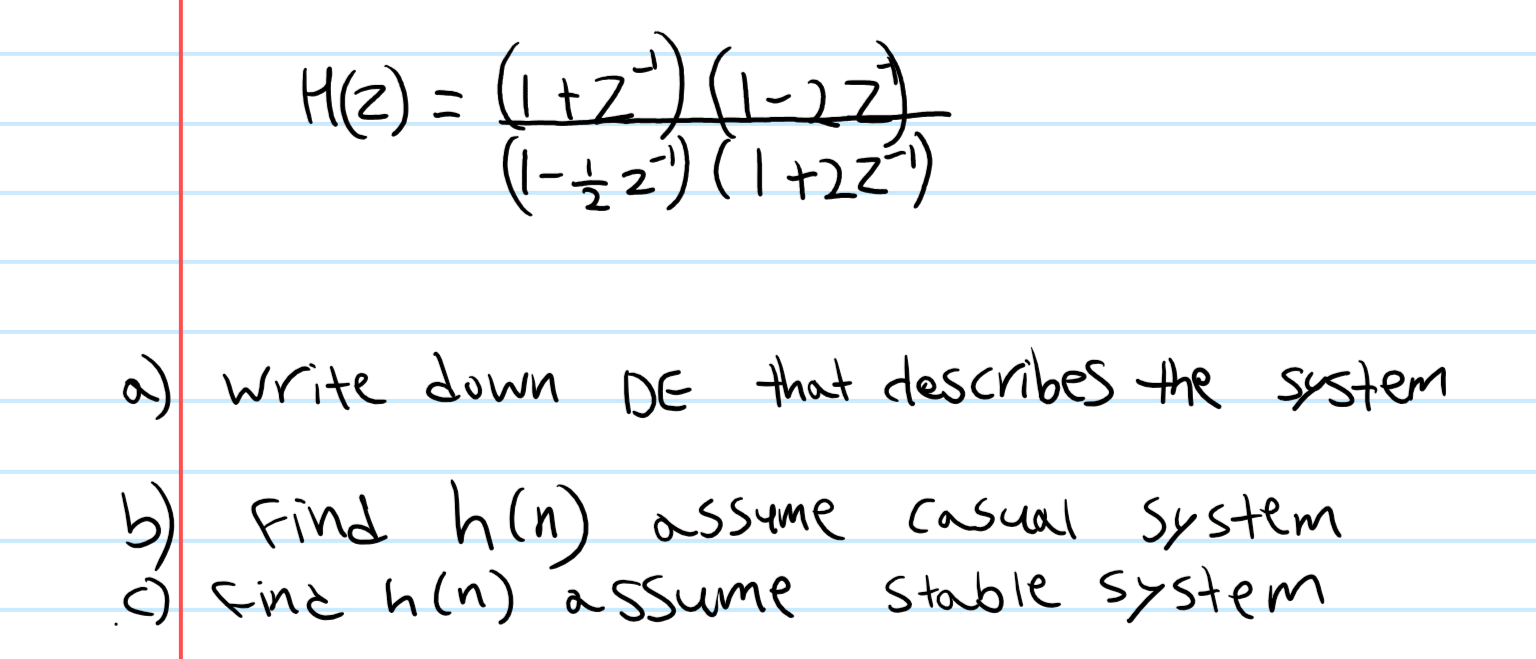 H(z) = (1+z⁻¹)(1-2z⁻¹)
(1-½z⁻¹)(1+2z⁻¹)
a) write down DE that describes the system
b) Find h(n) assume casual system
c) Find h(n) assume stable system